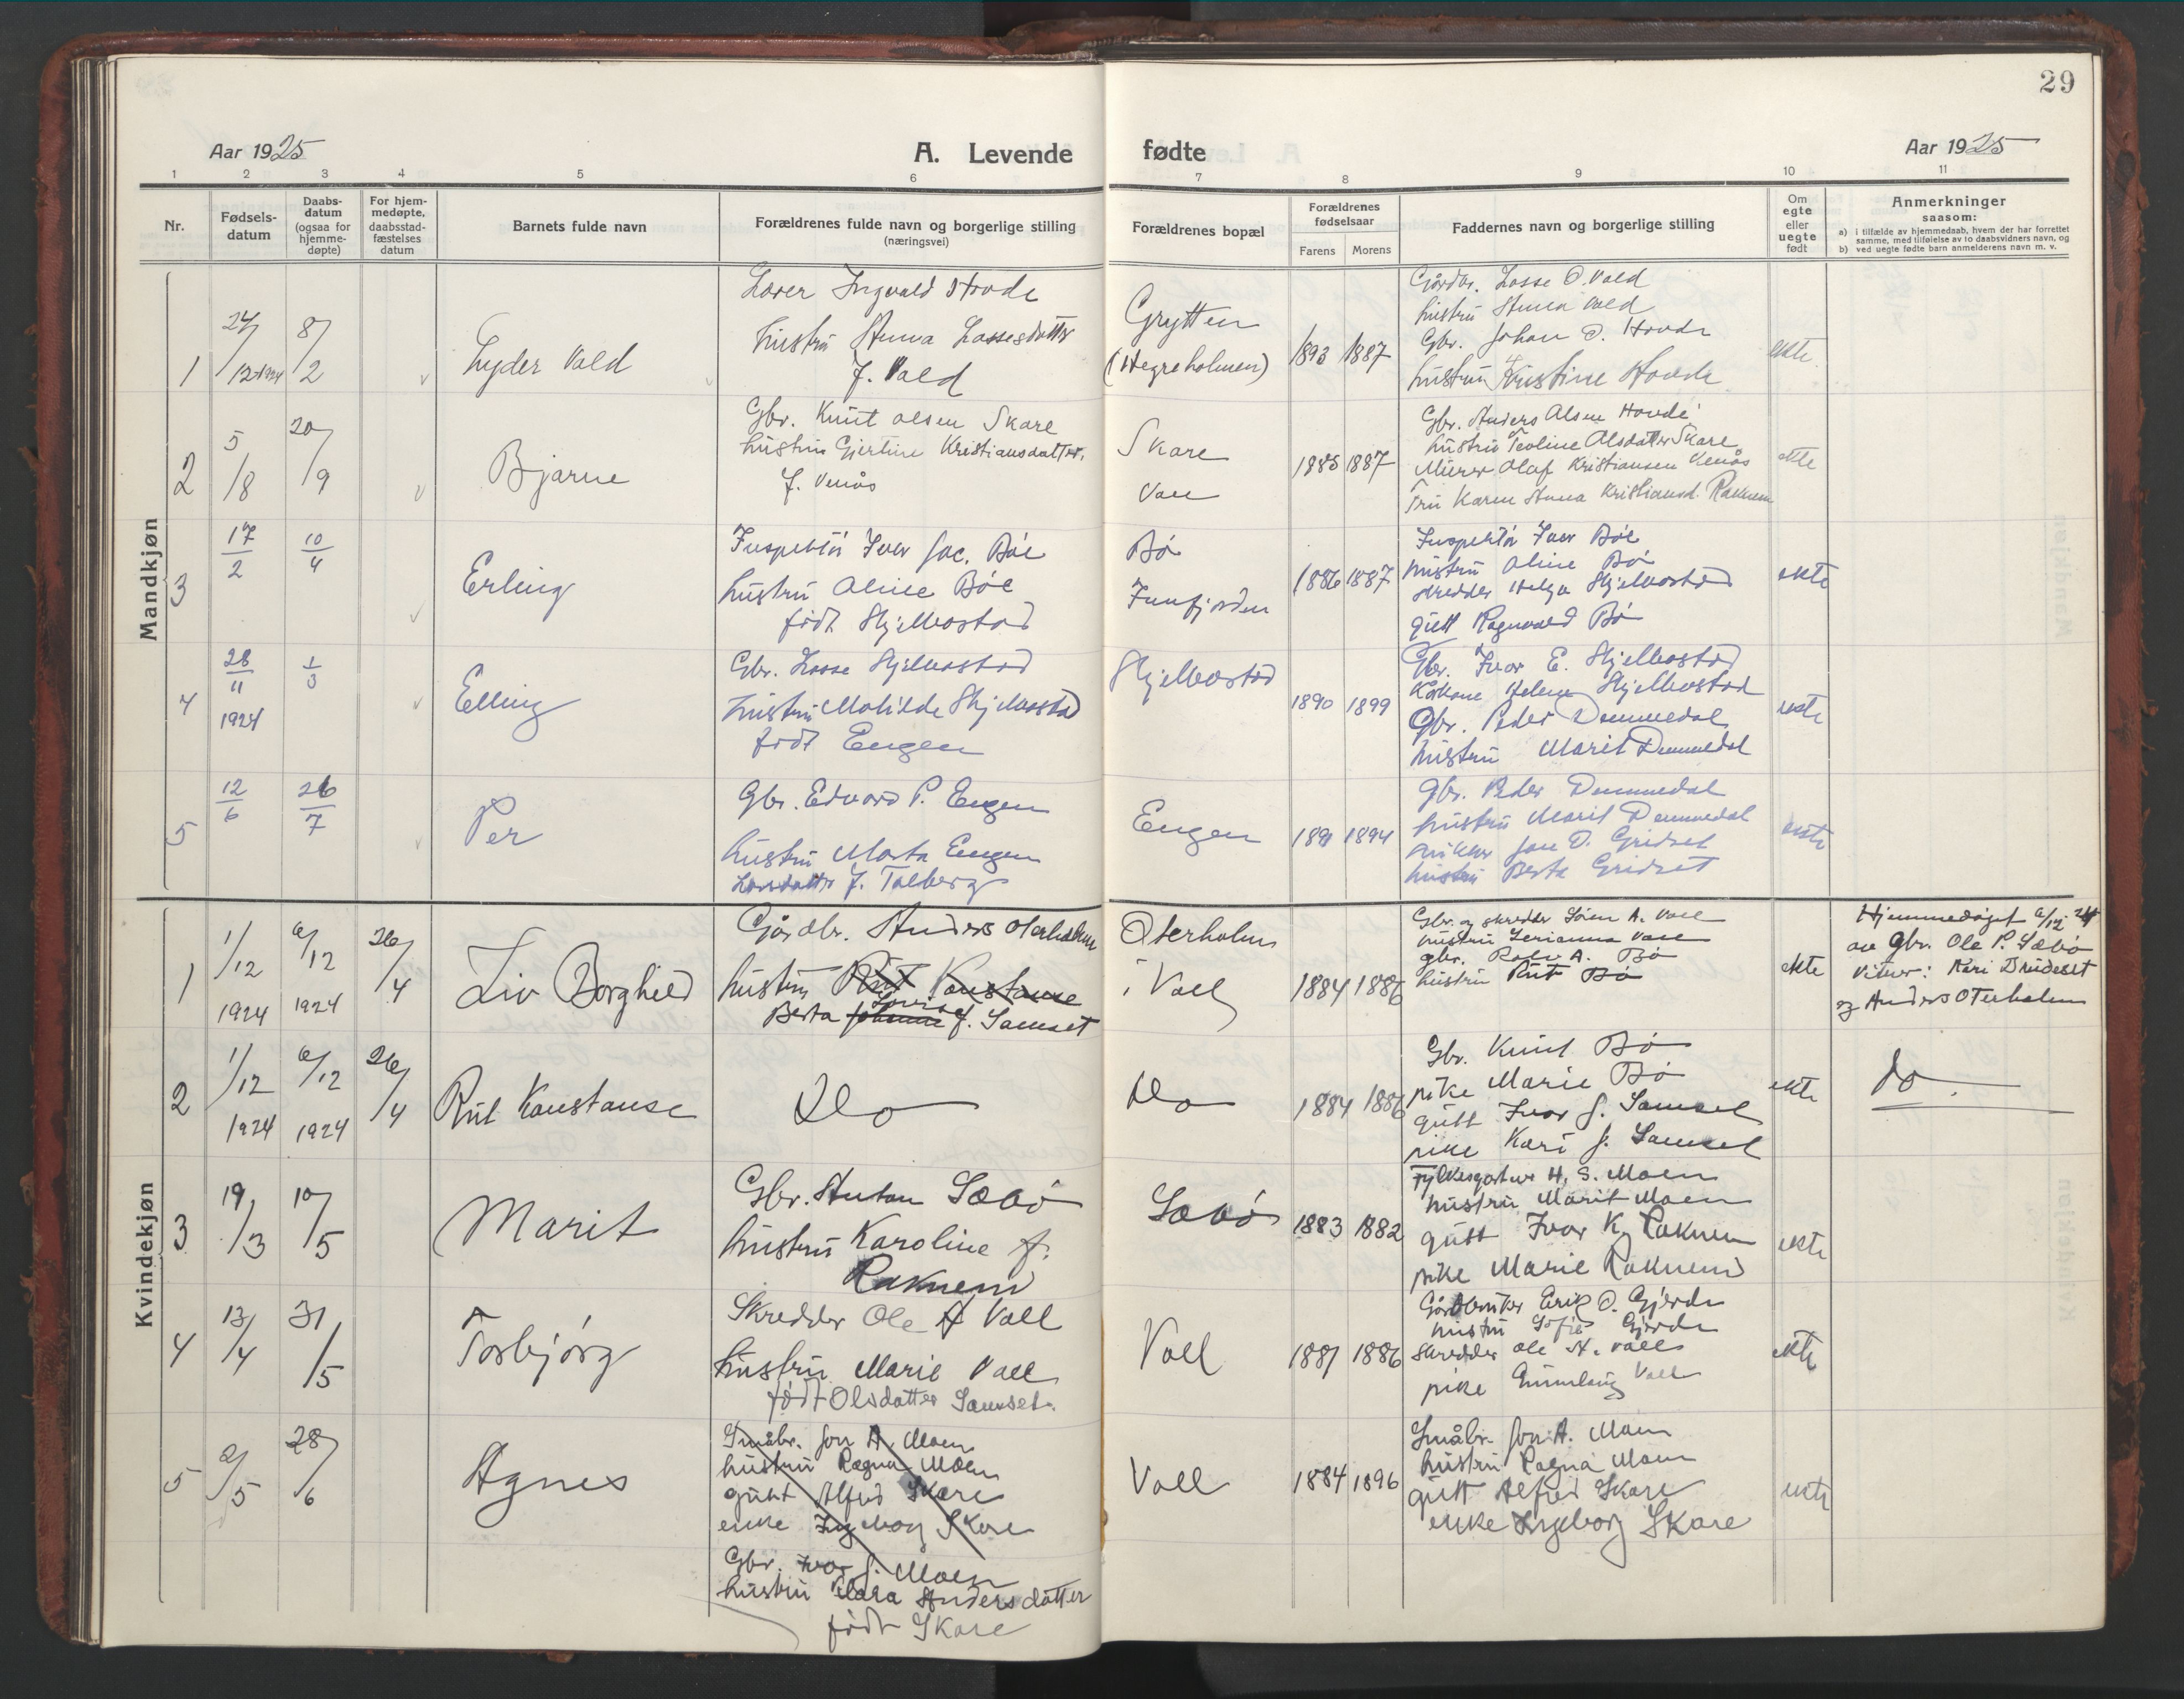 29
Aar 1925
A. Levende fødte
Aar 1925
1 2 3 4 5 6 7 8 9 10 11
Nr.
Fødsels-
datum
Daabs-
datum
(ogsaa for
hjemme-
døpte)
For hjem-
medøpte,
daabsstad-
fæstelses
datum
Barnets fulde navn
Forældrenes fulde navn og borgerlige stilling
(næringsvei)
Forældrenes bopæl
Forældrenes
fødselsaar
Farens Morens
Faddernes navn og borgerlige stilling
Om
egte
eller
uegte
født
Anmerkninger
saasom:
a) i tilfælde av hjemmedaab, hvem der har forrettet
samme, med tilføielse av to daabsvidners navn, og
b) ved uegte fødte barn anmelderens navn m. v.
Mandkjøn
1
24/12 1924
8/2
Lyder Vold
Lærer Ingvald Hovde
hustru Anna Lassesdatter
f. Vold
Grytten
(Hegreholmen)
1893 1887
Gårdbr. Lasse O. Vold
hustru Anna Vold
Gbr. Johan O. Hovde
hustru Kristine Hovde
ekte
2
5/8
20/9
Bjarne
Gbr. Knut Olsen Skare
hustru Gjertine Kristiansdatter,
f. Venås
Skare
Voll
1885 1887
Gbr. Anders Olsen Hovde
hustru Teoline Olsdatter Skare
Murer Olaf Kristiansen Venås
Fru Karen Anna Kristiansd. Raknem
ekte
3
17/2
10/4
Erling
Inspektør Iver Jac. Bøe
hustru Oline Bøe
født Hjelvostad
Bø
Innfjorden
1886 1887
Inspektør Iver Bøe
hustru Oline Bø
skredder Helge Hjelvostad
gutt Ragnvald Bø
ekte
4
28/11
1924
1/3
Elling
Gbr. Lasse Hjelvostad
hustru Matilde Hjelvostad
født Engen
Hjelvostad
1890 1899
Gbr. Ivar E. Hjelvostad
Kårkone Helene Hjelvostad
Gbr. Peder Dommedal
hustru Marit Dommedal
ekte
5
12/6
26/7
Per
Gbr. Edvard P. Engen
hustru Marta Engen
Larsdatter f. Talberg
Engen
1891 1894
Gbr. Peder Dommedal
hustru Marit Dommedal
snikker Jon O. Gridset
hustru Berta Gridset
ekte
Kvindekjøn
1
1/12
1924
6/12
1924
26/4
Liv Borghild
Gårdbr. Anders Oterholm
hustru Rut Konstanse
Lovise
Berta Johanne f. Samset
Oterholm
i Voll
1884 1886
Gbr. og skredder Søren A. Voll
hustru Serianna Voll
gbr. Rolv A. Bø
hustru Rut Bø
ekte
Hjemmedøpt 6/12 24
av Gbr. Ole P. Sæbø
Vitner: Kari Brudeset
og Anders Oterholm
2
1/12
1924
6/12
1924
26/4
Rut Konstanse
Do
Do
1884 1886
Gbr. Knut Bø
pike Marie Bø
gutt Ivar J. Samset
pike Kari J. Samset
ekte
do.
3
19/3
10/5
Marit
Gbr. Anton Sæbø
hustru Karoline f.
Raknem
Sæbø
1883 1882
Fylkesgartner H. S. Moen
hustru Marit Moen
gutt Ivar K. Raknem
pike Marie Raknem
ekte
4
13/4
31/5
Torbjørg
Skredder Ole A Voll
hustru Marie Voll
født Olsdatter Samset.
Voll
1881 1886
Gårdbruker Erik O. Gjerde
hustru Sofie Gjerde
skredder Ole A. Voll
pike Gunnlaug Voll
ekte
5
2/5
28/6
Agnes
Småbr. Jon A. Moen
hustru Ragna Moen
gutt Alfred Skare
enke Ingeborg Skare
Gbr. Ivar J. Moen
hustru Klara Andersdatter
født Skare
Voll
1884 1896
Småbr. Jon A. Moen
hustru Ragna Moen
gutt Alfred Skare
enke Ingeborg Skare
ekte